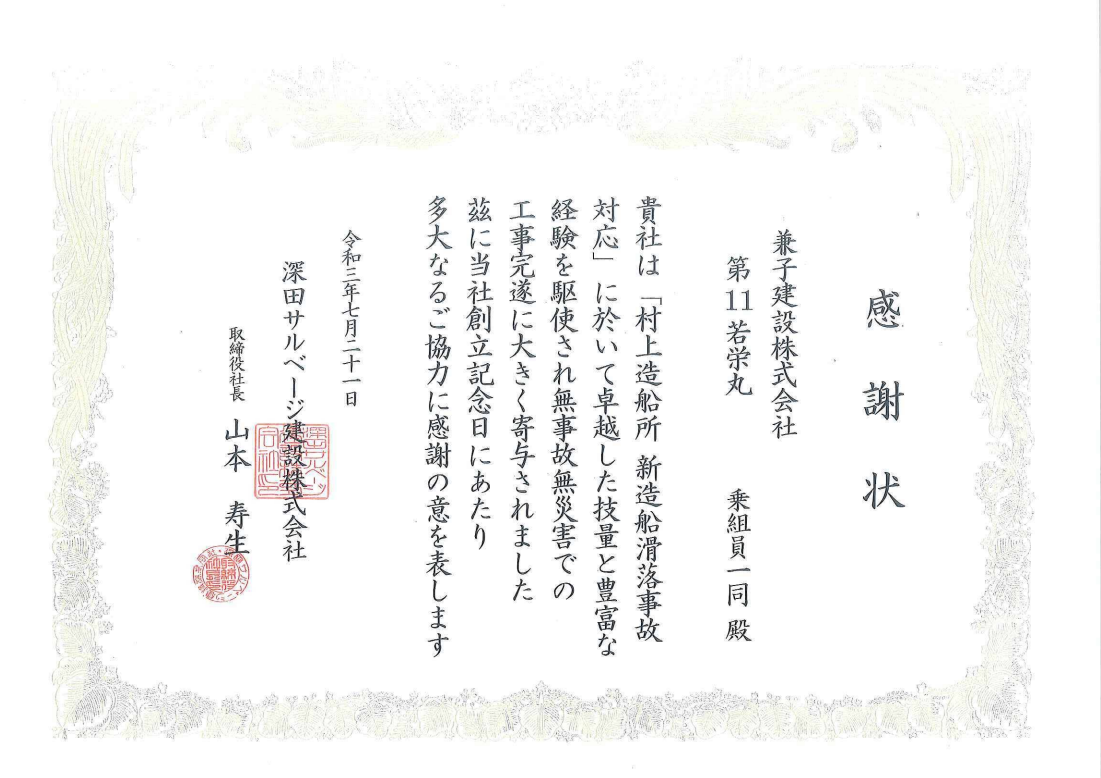 感謝状
兼子建設株式会社
第11若栄丸 乗組員一同 殿
貴社は「村上造船所 新造船滑落事故
対応」に於いて卓越した技量と豊富な
経験を駆使され無事故無災害での
工事完遂に大きく寄与されました
茲に当社創立記念日にあたり
多大なるご協力に感謝の意を表します
令和三年七月二十一日
深田サルベージ建設株式会社
取締役社長 山本 寿生